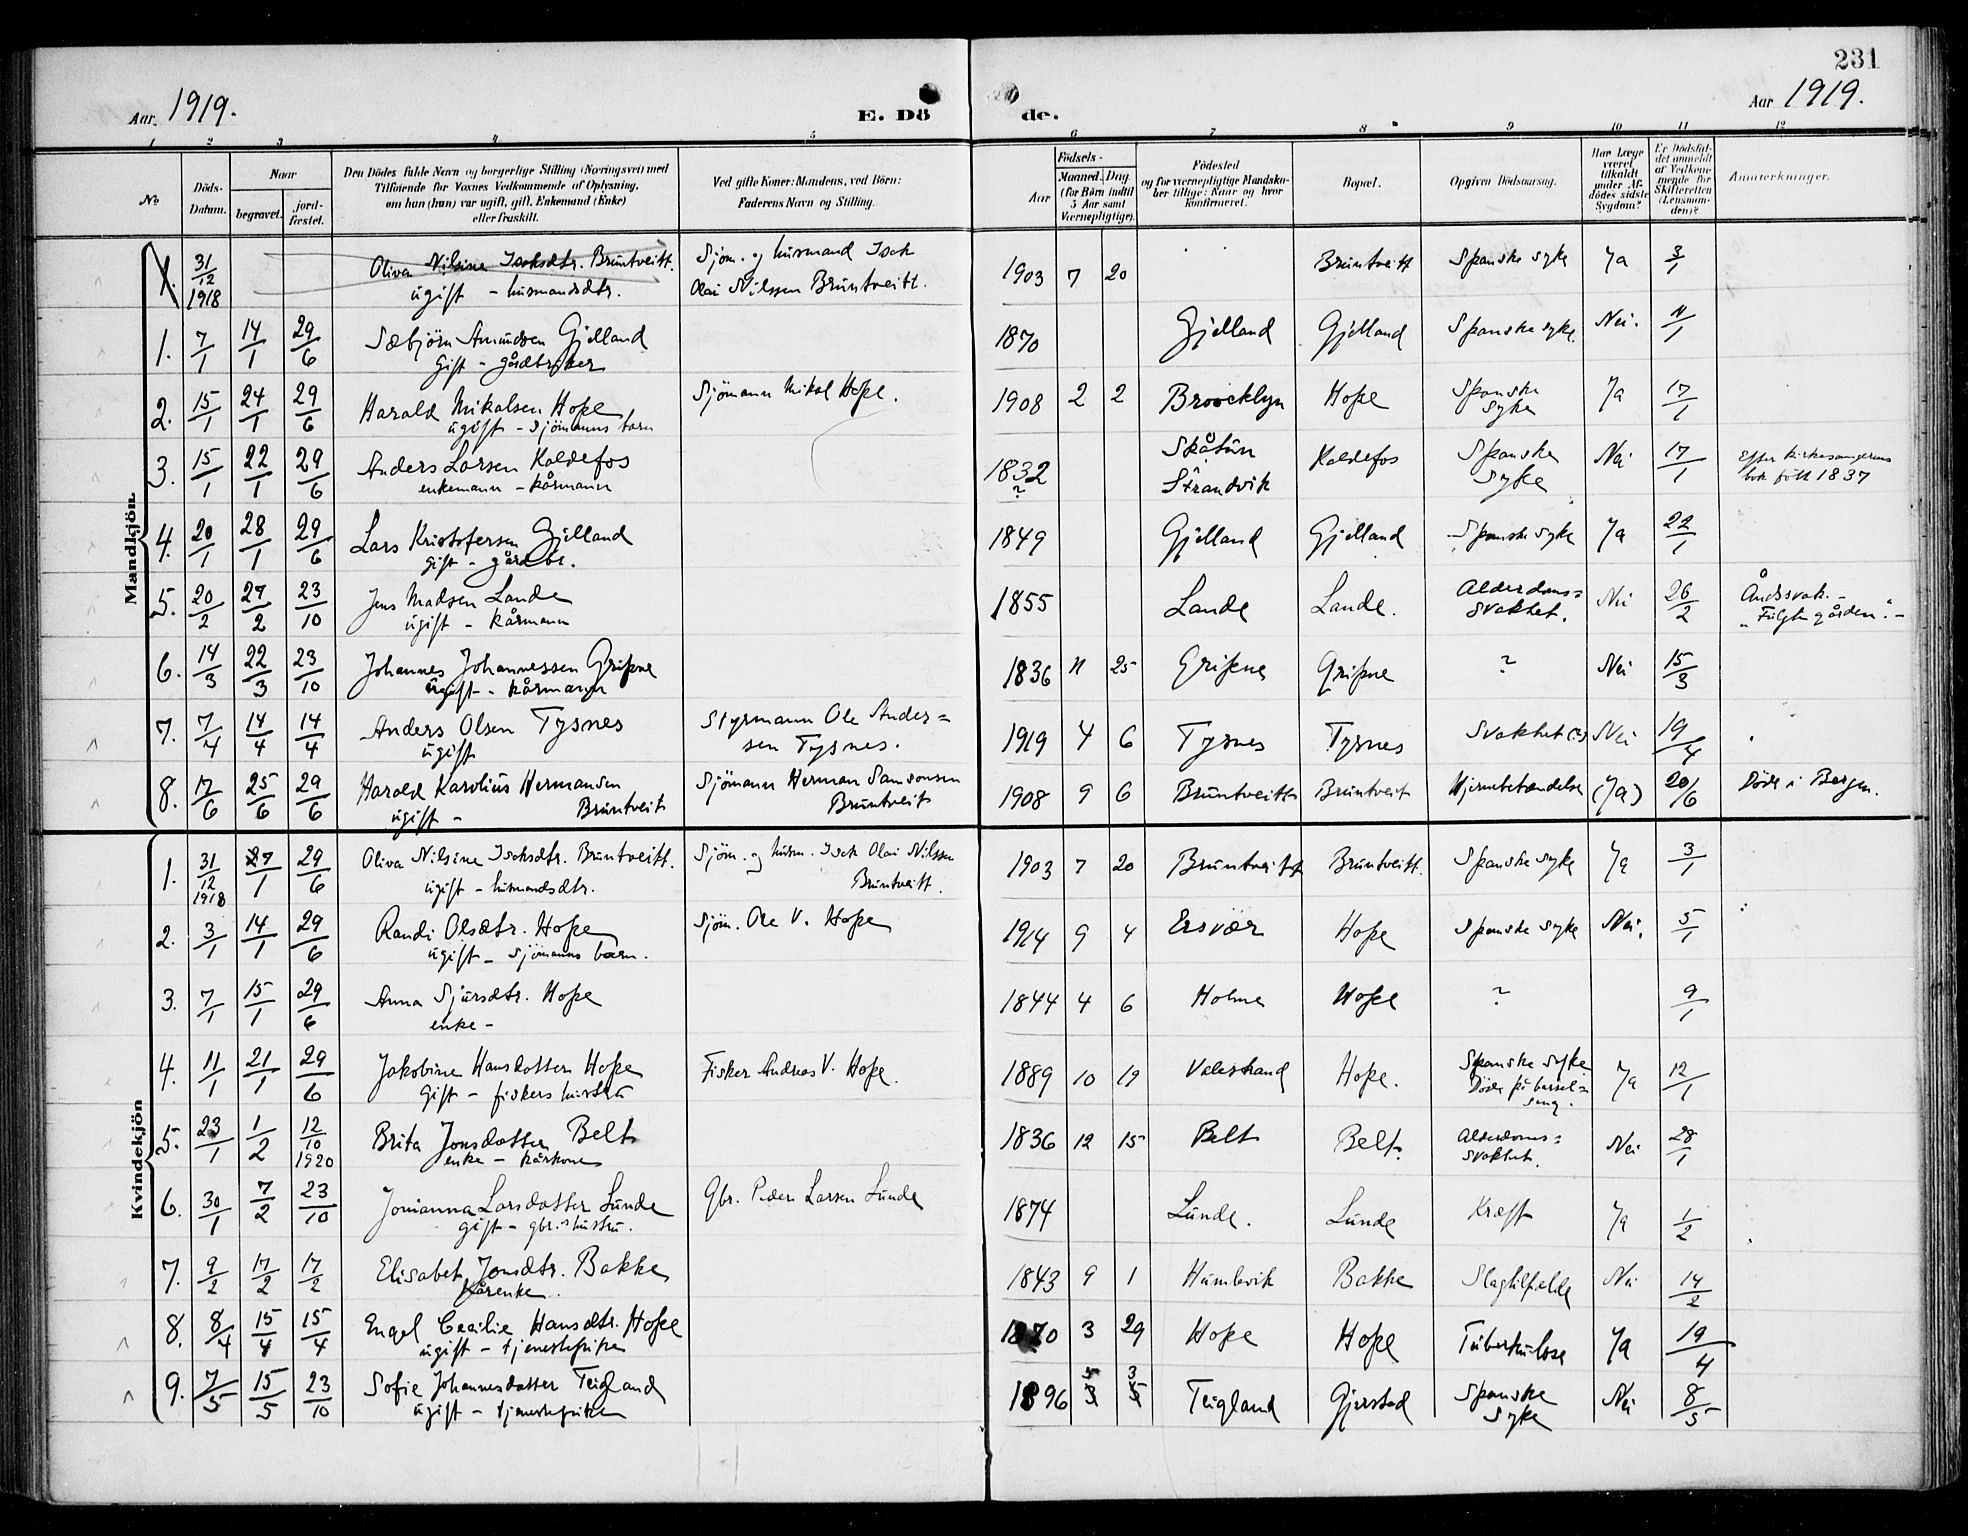 231
Aar 1919.
E. Dö
de.
Aar 1919.
1 2 3 4 5 6 7 8 9 10 11 12
No
Döds-Datum.
Naar
begravet.
jord-fæstet.
Den Dödes fulde Navn og borgerlige Stilling (Næringsvei) med
Tilföiende for Voxnes Vedkommende af Oplysning,
om han (hun) var ugift, gift, Enkemand (Enke)
eller fraskilt.
Ved gifte Koner: Mandens, ved Börn:
Faderens Navn og Stilling.
Födsels-
Aar
Maaned. Dag.
(for Börn indtil
5 Aar samt
Værnepligtige).
Födested
og for værnepligtige Mandska-
ber tillige: Naar og hvor
konfirmeret.
Bopæl.
Opgiven Dödsaarsag.
Har Læge
været
tilkaldt
under Af-
dödes sidste
Sygdom?
Er Dödsfal-
det anmeldt
af Vedkom-
mende for
Skifteretten
(Lensman-
den)?
Anmærkninger.
Mandkjön
1. 31/12 1918 Oliva Nilsine Isaksdtr. Bruntveitt. Sjöm. og husmand Isak 1903 7 20 Bruntveitt Spanske syke Ja 3/1
ugift – husmandsdtr. Olai Nilssen Bruntveitt.
1. 7/1 14/1 29/6 Sæbjörn Amundsen Gjelland 1870 Gjelland Gjelland Spanske syke. Nei. 11/1
Gift – gårdbruker
2. 15/1 24/1 29/6 Harald Mikalsen Hope Sjömann Mikal Hope. 1908 2 2 Broocklyn Hope Spanske syke Ja 17/1
ugift – sjömanns barn
3. 15/1 22/1 29/6 Anders Larsen Koldefos 1832 ? Skåtun Strandvik Koldefos Spanske syke Nei 17/1 Efter kirkesangerens
enkemann – kårmann bok född 1837
4. 20/1 28/1 29/6 Lars Kristofersen Gjelland 1849 Gjelland Gjelland Spanske syke Ja 22/1
gift – gårdbr.
5. 20/2 27/2 23/10 Jens Madsen Lande 1855 Lande Lande. Alderdoms= svakhet. Nei 26/2 Åndssvak. –
ugift – kårmann "Fulgte gården". –
6. 14/3 22/3 23/10 Johannes Johannessen Gripne 1836 11 25 Gripne Gripne ? Nei 15/3
ugift – kårmann
7. 7/4 14/4 14/4 Anders Olsen Tysnes Styrmann Ole Ander= 1919 4 6 Tysnes Tysnes Svakhet (?) Nei 19/4
ugift sen Tysnes.
8. 17/6 25/6 29/6 Harald Karolius Hermansen Sjömann Herman Samsonsen 1908 9 6 Bruntveitt Bruntveit Hjernebetændelse (Ja) 20/6 Döde i Bergen.
ugift – Bruntveit Bruntveit
Kvindekjön
1. 31/12 1918 27/1 29/6 Oliva Nilsine Isaksdtr. Bruntveitt. Sjöm. og husm. Isak Olai Nilssen 1903 7 20 Bruntveitt Bruntveitt. Spanske syke Ja 3/1
ugift – husmandsdtr. Bruntveitt.
2. 3/1 14/1 29/6 Randi Olsdtr. Hope Sjöm. Ole V. Hope 1914 9 4 Ersvær Hope Spanske syke Nei. 5/1
ugift – sjömanns barn.
3. 7/1 15/1 29/6 Anna Sjursdtr. Hope 1844 4 6 Holme Hope ? 9/1
enke –
4. 11/1 21/1 29/6 Jakobine Hansdatter Hope Fisker Andreas V. Hope. 1889 10 19 Valestrand Hope. Spanske syke Döde på barsel= seng. Ja 12/1
Gift – fiskers hustru
5. 23/1 1/2 12/10 1920 Brita Jonsdatter Belt 1836 12 15 Belt Belt. Alderdoms= svakhet. Nei 28/1
enke – kårkone
6. 30/1 7/2 23/10 Jonianna Larsdatter Lunde Gbr. Peder Larsen Lunde 1874 Lunde. Lunde Kræft Ja 1/2
gift – gbr.s hustru.
7. 9/2 17/2 17/2 Elisabet Jonsdtr. Bakke 1843 9 1 Humlevik Bakke Slagtilfælde Nei 14/2
kårenke.
8. 8/4 15/4 15/4 Engel Cecilie Hansdtr. Hope 1870 3 29 Hope Hope Tuberkulose Ja 19/4
ugift – tjenestepike
9. 7/5 15/5 23/10 Sofie Johannesdatter Teigland 1896 5 3 Teigland Gjerstad Spanske syke Nei 8/5
ugift – tjenestepike